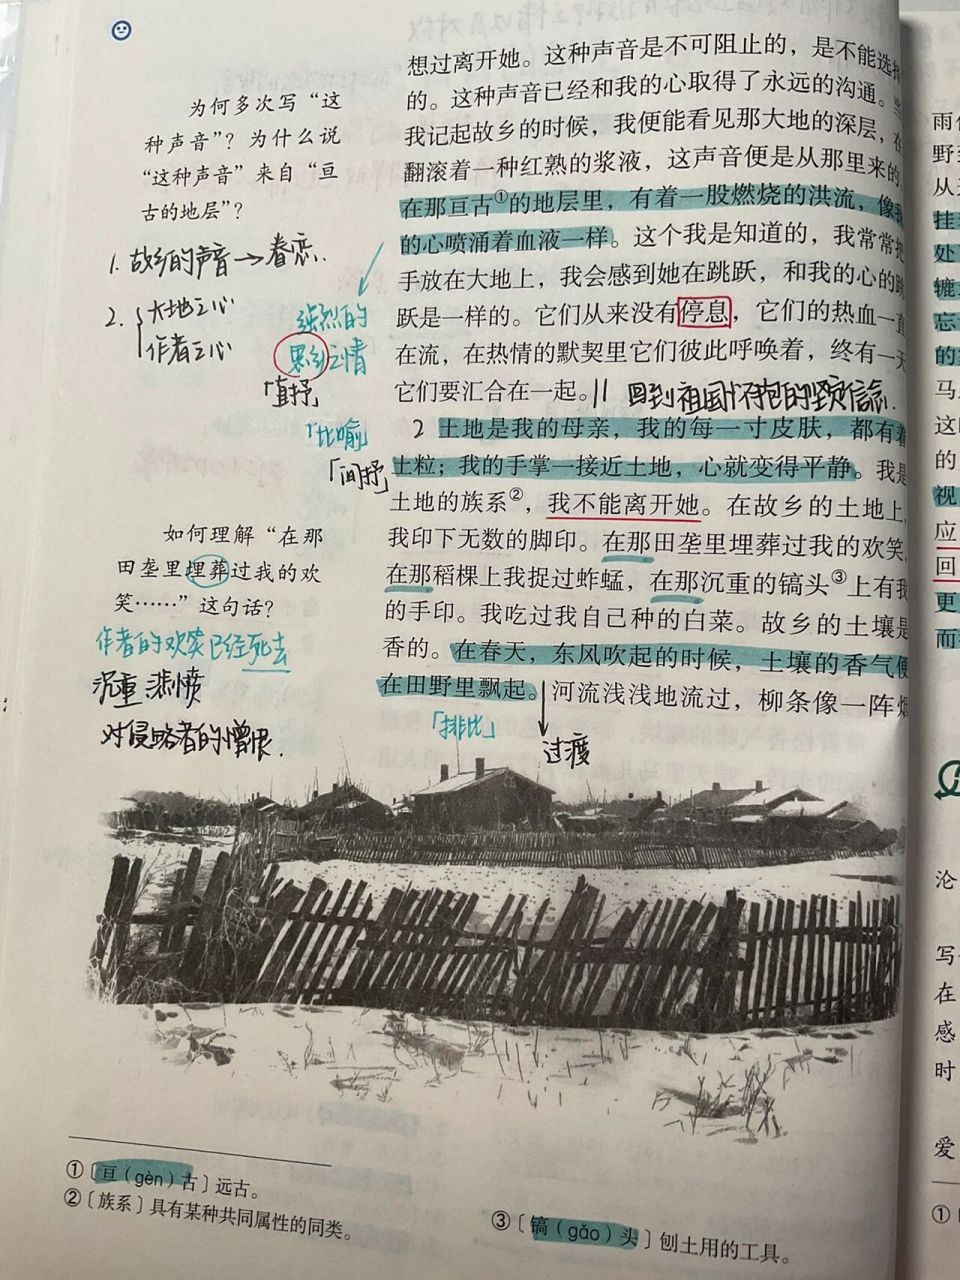 想过离开她。这种声音是不可阻止的，是不能选择
的。这种声音已经和我的心取得了永远的沟通。当
我记起故乡的时候，我便能看见那大地的深层，在
翻滚着一种红熟的浆液，这声音便是从那里来的。
在那亘古①的地层里，有着一股燃烧的洪流，像我
的心喷涌着血液一样。这个我是知道的，我常常把
手放在大地上，我会感到她在跳跃，和我的心的跳
跃是一样的。它们从来没有停息，它们的热血一直
在流，在热情的默契里它们彼此呼唤着，终有一天
它们要汇合在一起。|| 回到祖国怀抱的坚定信念.
2 土地是我的母亲，我的每一寸皮肤，都有着
土粒；我的手掌一接近土地，心就变得平静。我是
土地的族系②，我不能离开她。在故乡的土地上，
我印下无数的脚印。在那田垄里埋葬过我的欢笑，
在那稻棵上我捉过蚱蜢，在那沉重的镐头③上有我
的手印。我吃过我自己种的白菜。故乡的土壤是
香的。在春天，东风吹起的时候，土壤的香气便
在田野里飘起。河流浅浅地流过，柳条像一阵烟
「排比」
过渡
为何多次写“这
种声音”？为什么说
“这种声音”来自“亘
古的地层”？
1. 故乡的声音→眷恋.
2. 大地之心
作者之心
强烈的
思乡之情
「直抒」
「比喻」
「间抒」
如何理解“在那
田垄里埋葬过我的欢
笑……”这句话？
作者的欢笑已经死去
沉重 悲愤
对侵略者的憎恨.
①〔亘（gèn）古〕远古。
②〔族系〕具有某种共同属性的同类。
③〔镐（gǎo）头〕刨土用的工具。
野
从
挂
处
辘
忘
的
马
这
的
视
应
回
更
而
沦
写
在
感
时
爱
①